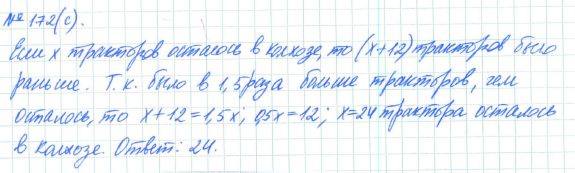 № 172(с).
Если x тракторов осталось в колхозе, то (x+12) тракторов было
раньше. Т.к. было в 1,5 раза больше тракторов, чем
осталось, то x+12=1,5x; 0,5x=12; x=24 трактора осталось
в колхозе. Ответ: 24.